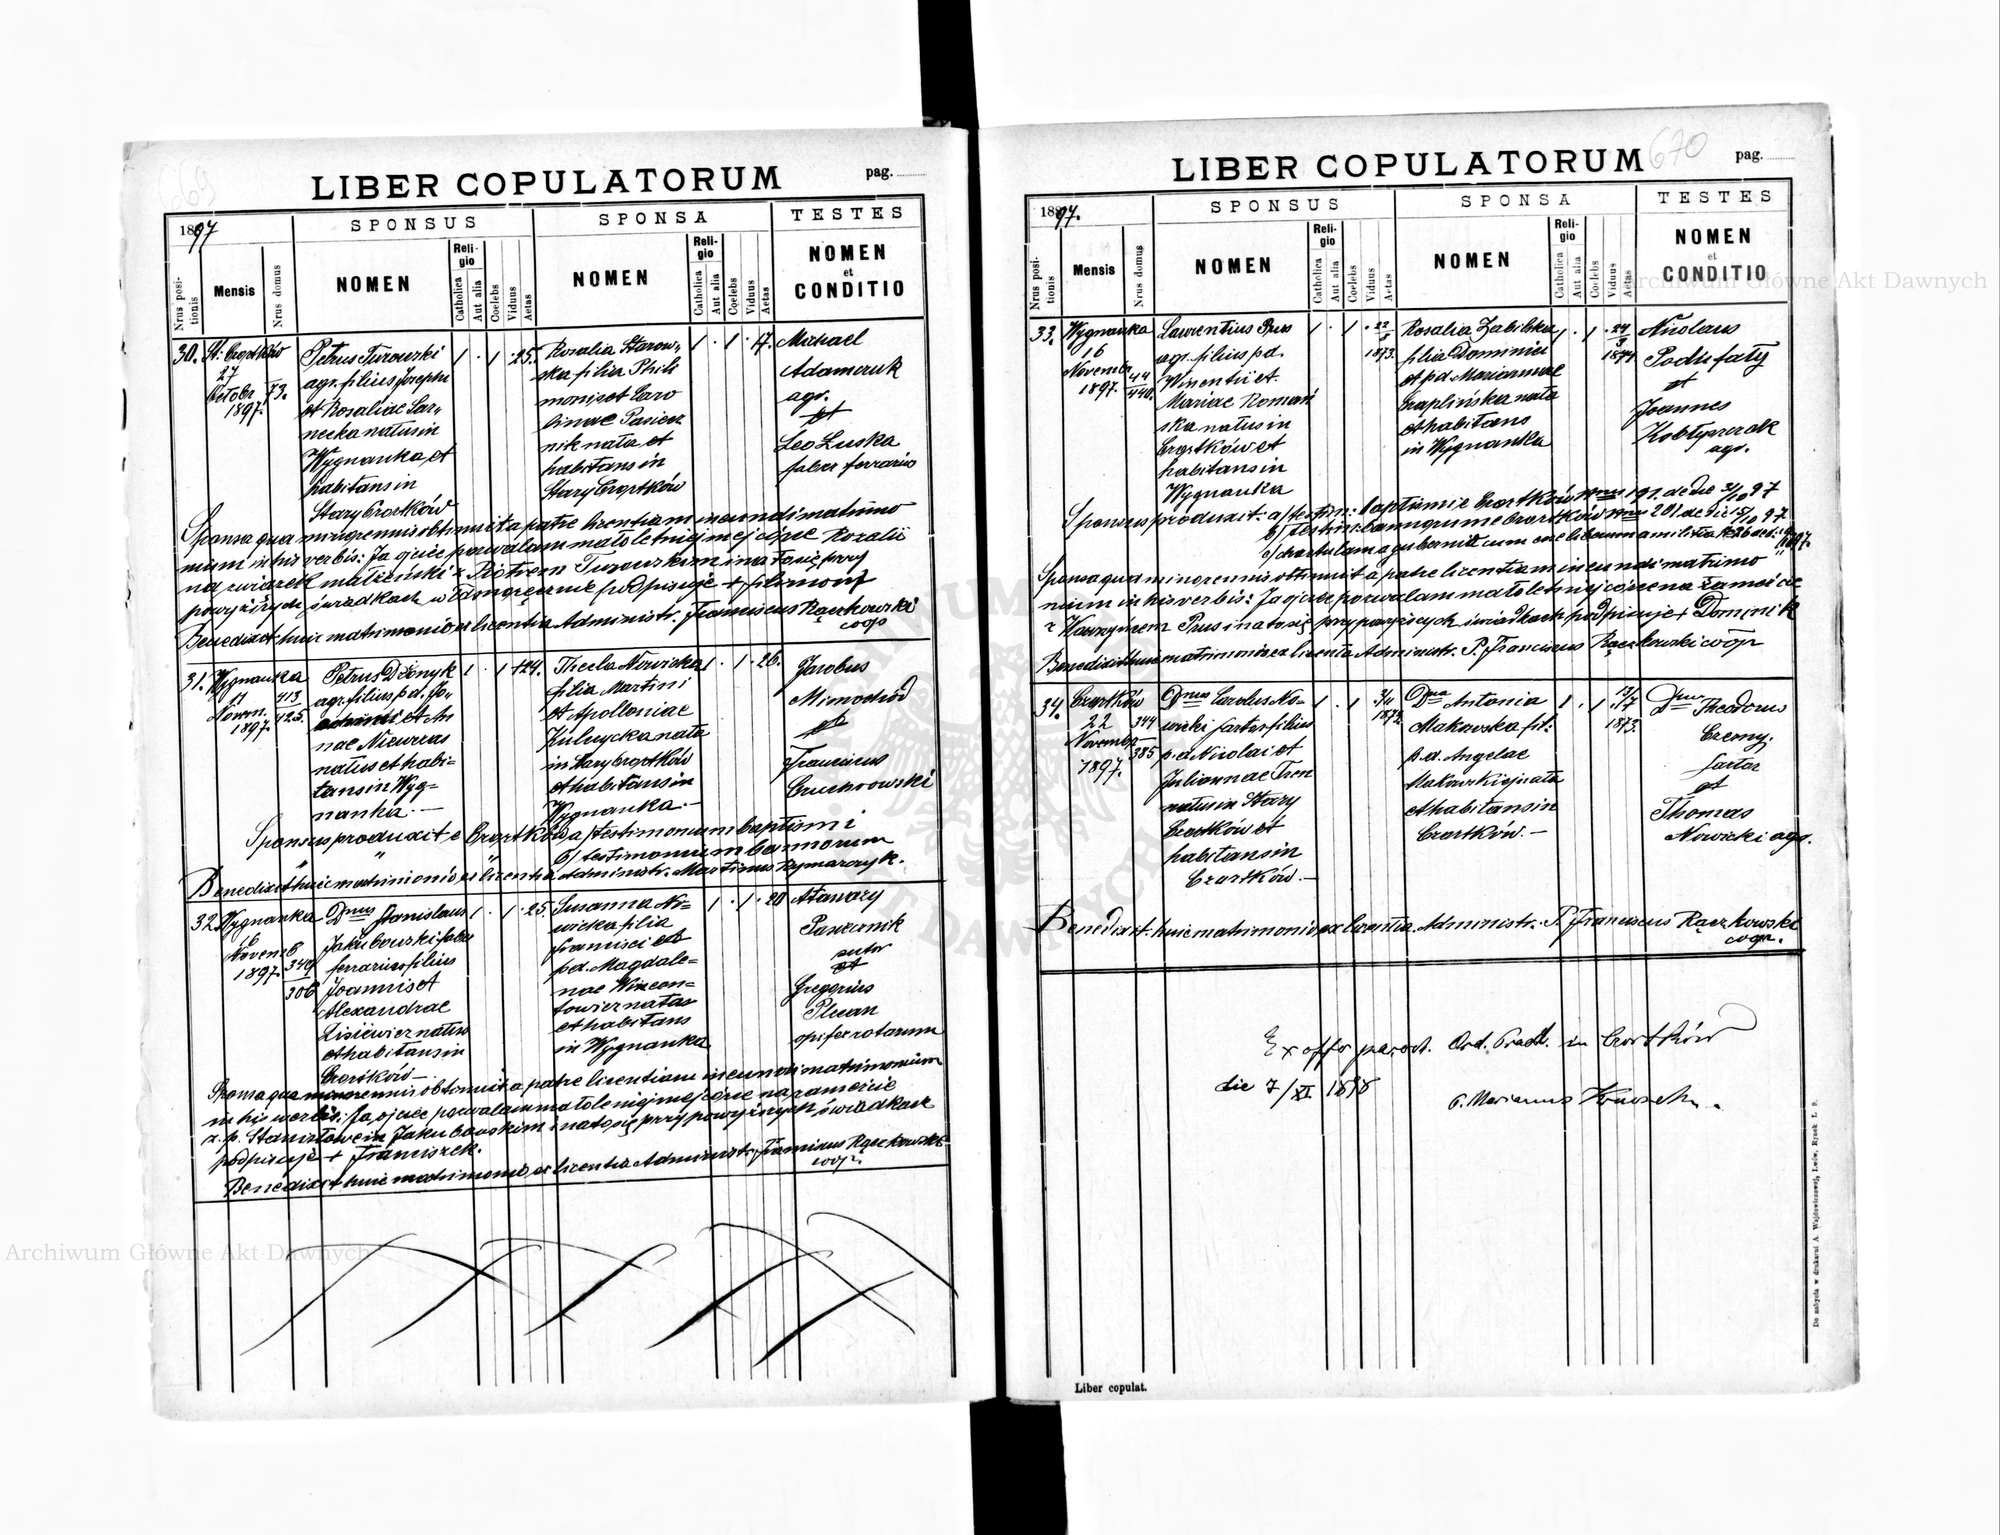 669
LIBER COPULATORUM
pag.
1897
SPONSUS
SPONSA
TESTES
Nrus positionis
Mensis
Nrus domus
NOMEN
Religio
Catholica
Aut alia
Coelebs
Viduus
Aetas
NOMEN
Religio
Catholica
Aut alia
Coelebs
Viduus
Aetas
NOMEN
et
CONDITIO
30. St. Czortków
27
Octobr.
1897.
73.
Petrus Turowski
agr. filius Josephi
et Rosaliae Sar-
necka natus in
Wygnanka et
habitans in
Stary Czortków
1 . 1 . 25.
Rosalia Starow-
ska filia Phili
monis et Caro
linae Pasiecz
nik nata et
habitans in
Stary Czortków
1 . 1 . 17.
Michael
Adamczuk
agr.
et
Leo Luska
faber ferrarius
Sponsa qua minorennis obtinuit a patre licentiam ineundi matrimo
nium in his verbis: Ja ojciec pozwalam małoletniej mej córce Rozalii
na związek małżeński z Piotrem Turowskim i na to się przy
powyższych świadkach własnoręcznie podpisuję + Filimon
Benedixit huic matrimonio ex licentia Administr. Franciscus Rączkowski
coop
31. Wygnanka
17
Novem.
1897.
413
425.
Petrus Dżonyk
agr. filius pd. Jo-
et An
nae Niewczas
natus et habi-
tans in Wyg-
nanka. —
1 . 1 . 24.
Thecla Nowicka
filia Martini
et Apolloniae
Kulnycka nata
in Stary Czortków
et habitans in
Wygnanka. —
1 . 1 . 26.
Jacobus
Mimochód
et
Franciscus
Sponsus produxit e Czortków a/ testimonium baptismi
" " b/ testimonium bannorum
Benedixit huic matrimonio ex licentia Administr. Martinus Rymarczyk.
32. Wygnanka
16
Novemb
1897.
349
306
Dnus Stanislaus
Jakubowski faber
ferrarius filius
Joannis et
Alexandrae
Lisiewicz natus
et habitans in
Czortków —
1 . 1 . 25.
Susanna No-
wicka filia
Francisci et
pd. Magdale-
nae Wincen-
towicz nata
et habitans
in Wygnanka
1 . 1 . 20
Atanazy
Pasiecznik
sutor
et
Gregorius
Plucan
opifex rotarum
Sponsa qua minorennis obtinuit a patre licentiam ineundi matrimonium
in his verbis: Ja ojciec pozwalam małoletniej mej córce na zamęście
z p. Stanisławem Jakubowskim i na to się przy powyższych świadkach
podpisuję + Franciszek.
Benedixit huic matrimonio ex licentia Administr. Franciscus Rączkowski
coop.
670
LIBER COPULATORUM
pag.
1897.
SPONSUS
SPONSA
TESTES
Nrus positionis
Mensis
Nrus domus
NOMEN
Religio
Catholica
Aut alia
Coelebs
Viduus
Aetas
NOMEN
Religio
Catholica
Aut alia
Coelebs
Viduus
Aetas
NOMEN
et
CONDITIO
33. Wygnanka
16
Novembr
1897.
44
440.
Laurentius Prus
agr. filius pd.
Vincentii et
Mariae Romań
ska natus in
Czortków et
habitans in
Wygnanka
1 . 1 . 22/8
1873.
Rosalia Zabilska
filia Dominici
et pd Mariannae
Czaplińska nata
et habitans
in Wygnanka
1 . 1 . 24/9
1874
Nicolaus
Podufały
et
Joannes
Kobłyszczak
agr.
Sponsus produxit: a/ testim: baptismi e Czortków Nrus 191. de die 3/10 97
b/ testim: bannorum e Czortków Nrus 201 de die 15/10 97
Sponsa qua minorennis obtinuit a patre licentiam ineundi matrimo
nium in his verbis: Ja ojciec pozwalam małoletniej córce na zamęście
z Wawrzyncem Prus i na to się przy powyższych świadkach podpisuję + Dominik
Benedixit huic matrimonio ex licentia Administr. P. Franciscus Rączkowski coop
34. Czortków
22
Novembr
1897.
344
385
Dnus Carolus No-
wicki sartor filius
p.d. Nicolai et
Juliannae Tren
natus in Stary
Czortków et
habitans in
Czortków. —
1 . 1 . 3/11
1872.
Dna Antonia
Makowska fil:
p.d. Angelae
Makowski nata
et habitans in
Czortków. —
1 . 1 . 13/7
1873.
Dnus Theodorus
Czerny.
sartor
et
Thomas
Nowicki agr.
Benedixit huic matrimonio ex licentia Administr. P. Franciscus Rączkowski
coop.
Ex offo paroch. Ord. Praed. in Czortków
die 7/XI 1898
P. Marianus
Liber copulat.
Do nabycia w drukarni A. Wajdowiczowej, Lwów, Rynek l. 9.
Archiwum Główne Akt Dawnych
Archiwum Główne Akt Dawnych